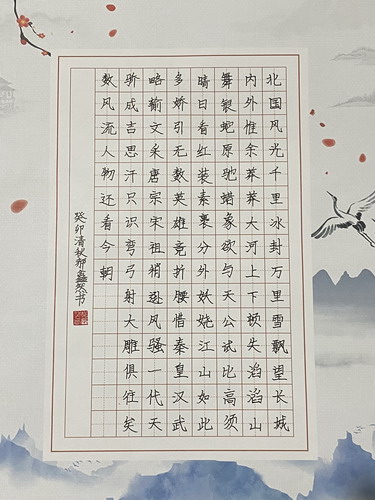 北国风光千里冰封万里雪飘望长城
内外惟余莽莽大河上下顿失滔滔山
舞银蛇原驰蜡象欲与天公试比高须
晴日看红装素裹分外妖娆江山如此
多娇引无数英雄竞折腰惜秦皇汉武
略输文采唐宗宋祖稍逊风骚一代天
骄成吉思汗只识弯弓射大雕俱往矣
数风流人物还看今朝
癸卯清秋 鑫 书